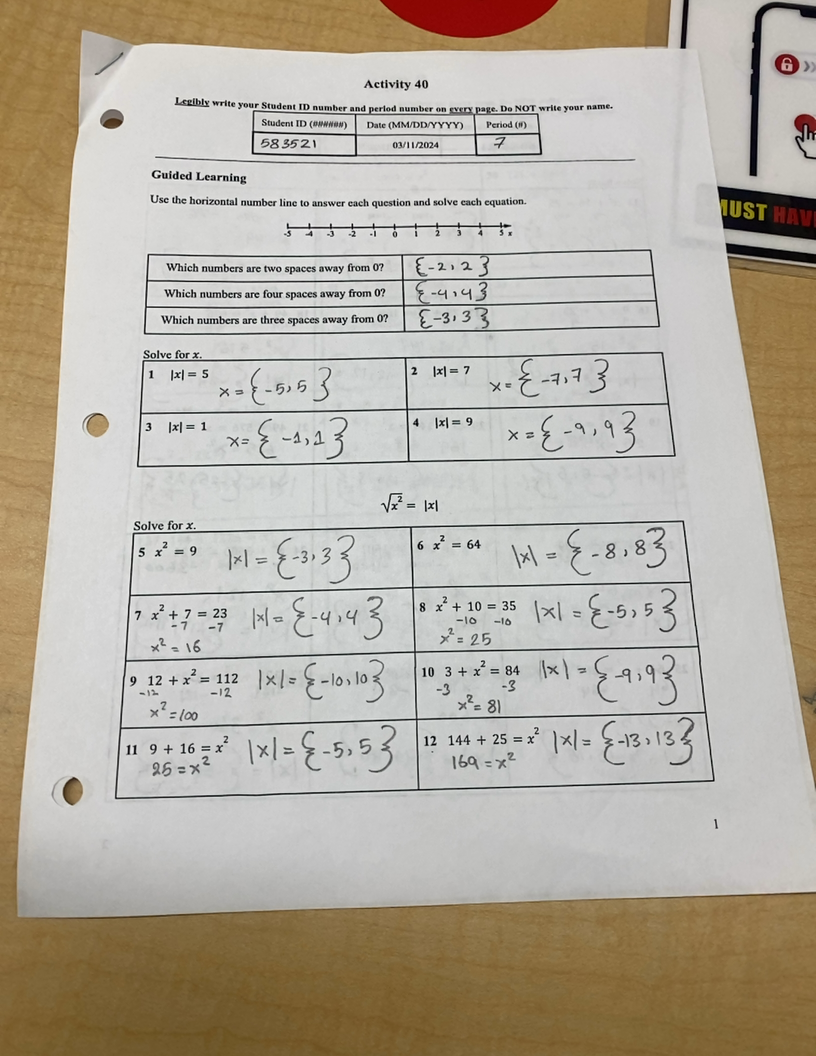 Activity 40
Legibly write your Student ID number and period number on every page. Do NOT write your name.
Student ID (######) Date (MM/DD/YYYY) Period (#)
583521 03/11/2024 7
Guided Learning
Use the horizontal number line to answer each question and solve each equation.
-5 -4 -3 -2 -1 0 1 2 3 4 5 x
Which numbers are two spaces away from 0? {-2, 2}
Which numbers are four spaces away from 0? {-4, 4}
Which numbers are three spaces away from 0? {-3, 3}
Solve for x.
1 |x| = 5 x = {-5, 5}
2 |x| = 7 x = {-7, 7}
3 |x| = 1 x = {-1, 1}
4 |x| = 9 x = {-9, 9}
√x² = |x|
Solve for x.
5 x² = 9 |x| = {-3, 3}
6 x² = 64 |x| = {-8, 8}
7 x² + 7 = 23 |x| = {-4, 4}
-7 -7
x² = 16
8 x² + 10 = 35 |x| = {-5, 5}
-10 -10
x² = 25
9 12 + x² = 112 |x| = {-10, 10}
-12 -12
x² = 100
10 3 + x² = 84 |x| = {-9, 9}
-3 -3
x² = 81
11 9 + 16 = x² |x| = {-5, 5}
25 = x²
12 144 + 25 = x² |x| = {-13, 13}
169 = x²
1
MUST HAV